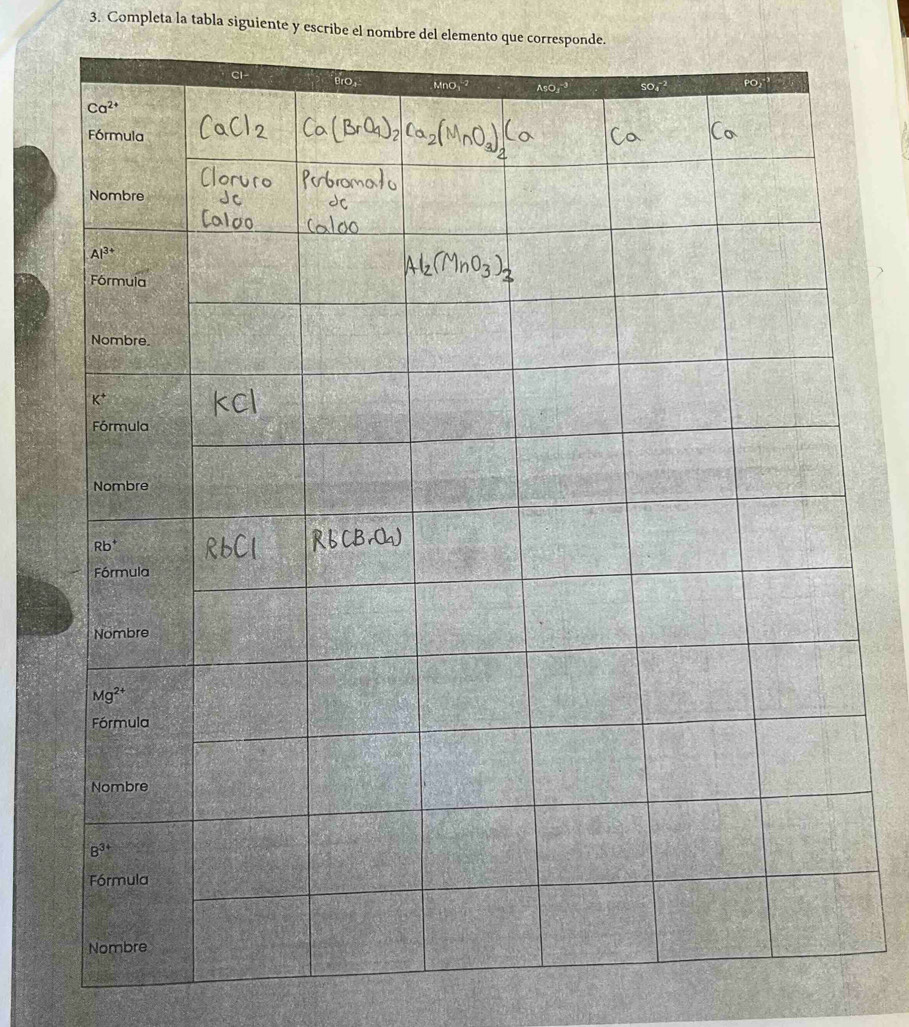 3. Completa la tabla siguiente y escribe el nombre del elemento que corresponde.
Cl- BrO₄- MnO₃⁻² AsO₃⁻³ SO₄⁻² PO₃⁻³
Ca²⁺
Fórmula CaCl2 Ca(BrO4)2 Ca2(MnO3)2 Ca Ca Ca
Nombre Cloruro Perbromato
de de
Calcio Calcio
Al³⁺
Fórmula Al2(MnO3)3
Nombre.
K⁺ KCl
Fórmula
Nombre
Rb⁺ RbCl Rb(BrO4)
Fórmula
Nombre
Mg²⁺
Fórmula
Nombre
B³⁺
Fórmula
Nombre